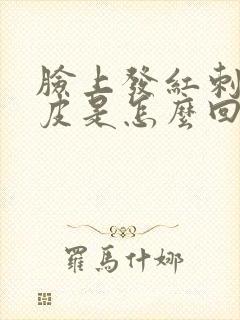 臉上發紅刺
皮是怎麼回
羅馬什娜